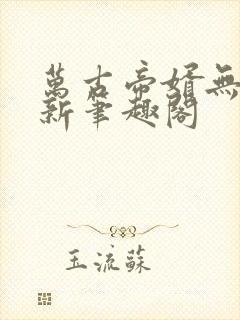 萬古帝婿無
新筆趣閣
玉流蘇